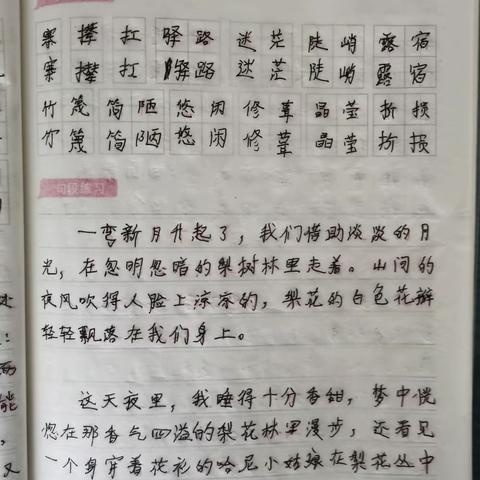 寨 攀 扛 驿 路 迷 茫 陡 峭 露 宿
寨 攀 扛 驿 路 迷 茫 陡 峭 露 宿
竹 篾 简 陋 悠 闲 修 葺 晶 莹 折 损
竹 篾 简 陋 悠 闲 修 葺 晶 莹 折 损
句段练习
一弯新月升起了，我们借助淡淡的月
光，在忽明忽暗的梨树林里走着。山间的
夜风吹得人脸上凉凉的，梨花的白色花瓣
轻轻飘落在我们身上。
这天夜里，我睡得十分香甜，梦中恍
惚在那香气四溢的梨花林里漫步，还看见
一个身穿着花衫的哈尼小姑娘在梨花丛中